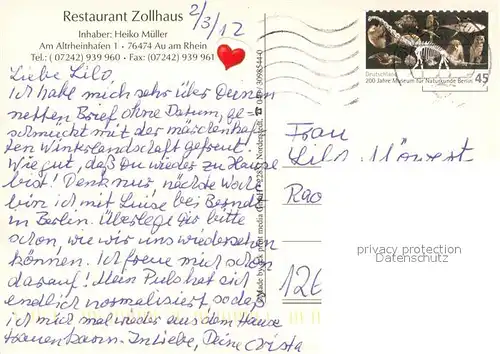 Restaurant Zollhaus
Inhaber: Heiko Müller
Am Altrheinhafen 1 • 76474 Au am Rhein
Tel.: (07242) 939 960 • Fax: (07242) 939 961
2/3/12
Liebe Lilo,
Ich habe mich sehr über Deinen
netten Brief ohne Datum, ge-
schmückt mit der märchenhaf-
ten Winterlandschaft gefreut.
Wie gut, daß Du wieder zu Hause
bist! Denk nur, nächste Woche
bin ich mit Luise bei Bernd
in Berlin. Überlege dir bitte
schon, wie wir uns wiedersehen
können. Ich freue mich schon
darauf! Mein Puls hat sich
endlich normalisiert, so daß
ich mich mal wieder aus dem Hause
trauen kann. In Liebe, Deine Christa
Deutschland
200 Jahre Museum für Naturkunde Berlin
45
Frau
Lilo
privacy protection
Datenschutz
12€